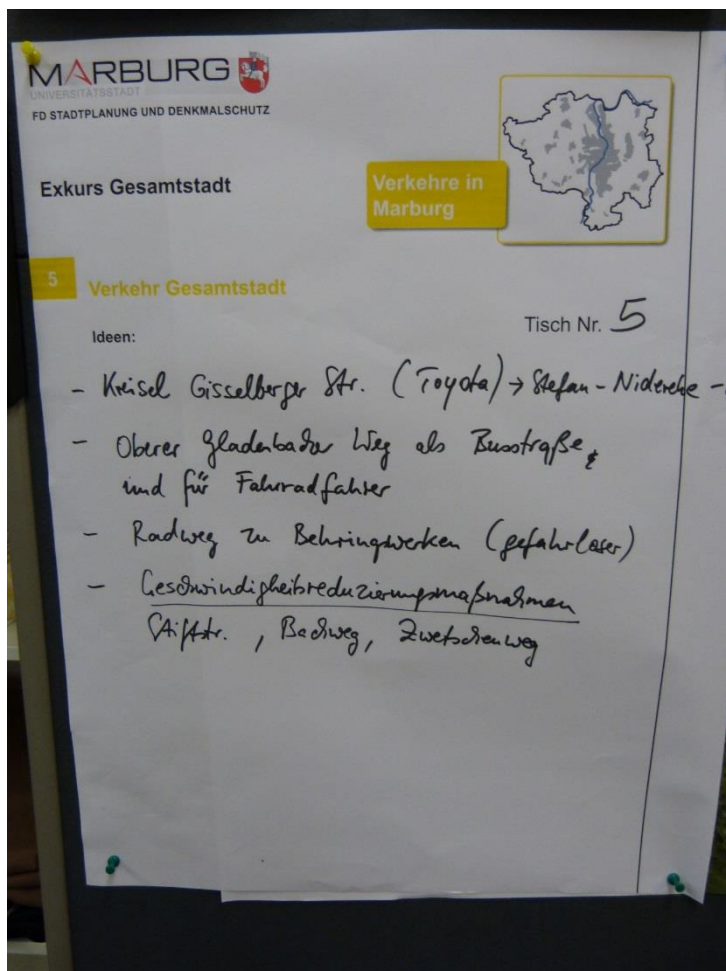 MARBURG
UNIVERSITÄTSSTADT
FD STADTPLANUNG UND DENKMALSCHUTZ
Exkurs Gesamtstadt
Verkehre in
Marburg
5 Verkehr Gesamtstadt
Tisch Nr. 5
Ideen:
- Kreisel Gisselberger Str. (Toyota) → Stefan - Niderehe -
- Oberer Gladenbacher Weg als Busstraße
und für Fahrradfahrer
- Radweg zu Behringwerken (gefahrloser)
- Geschwindigkeitsreduzierungsmaßnahmen
Stiftstr., Bachweg, Zwetschenweg